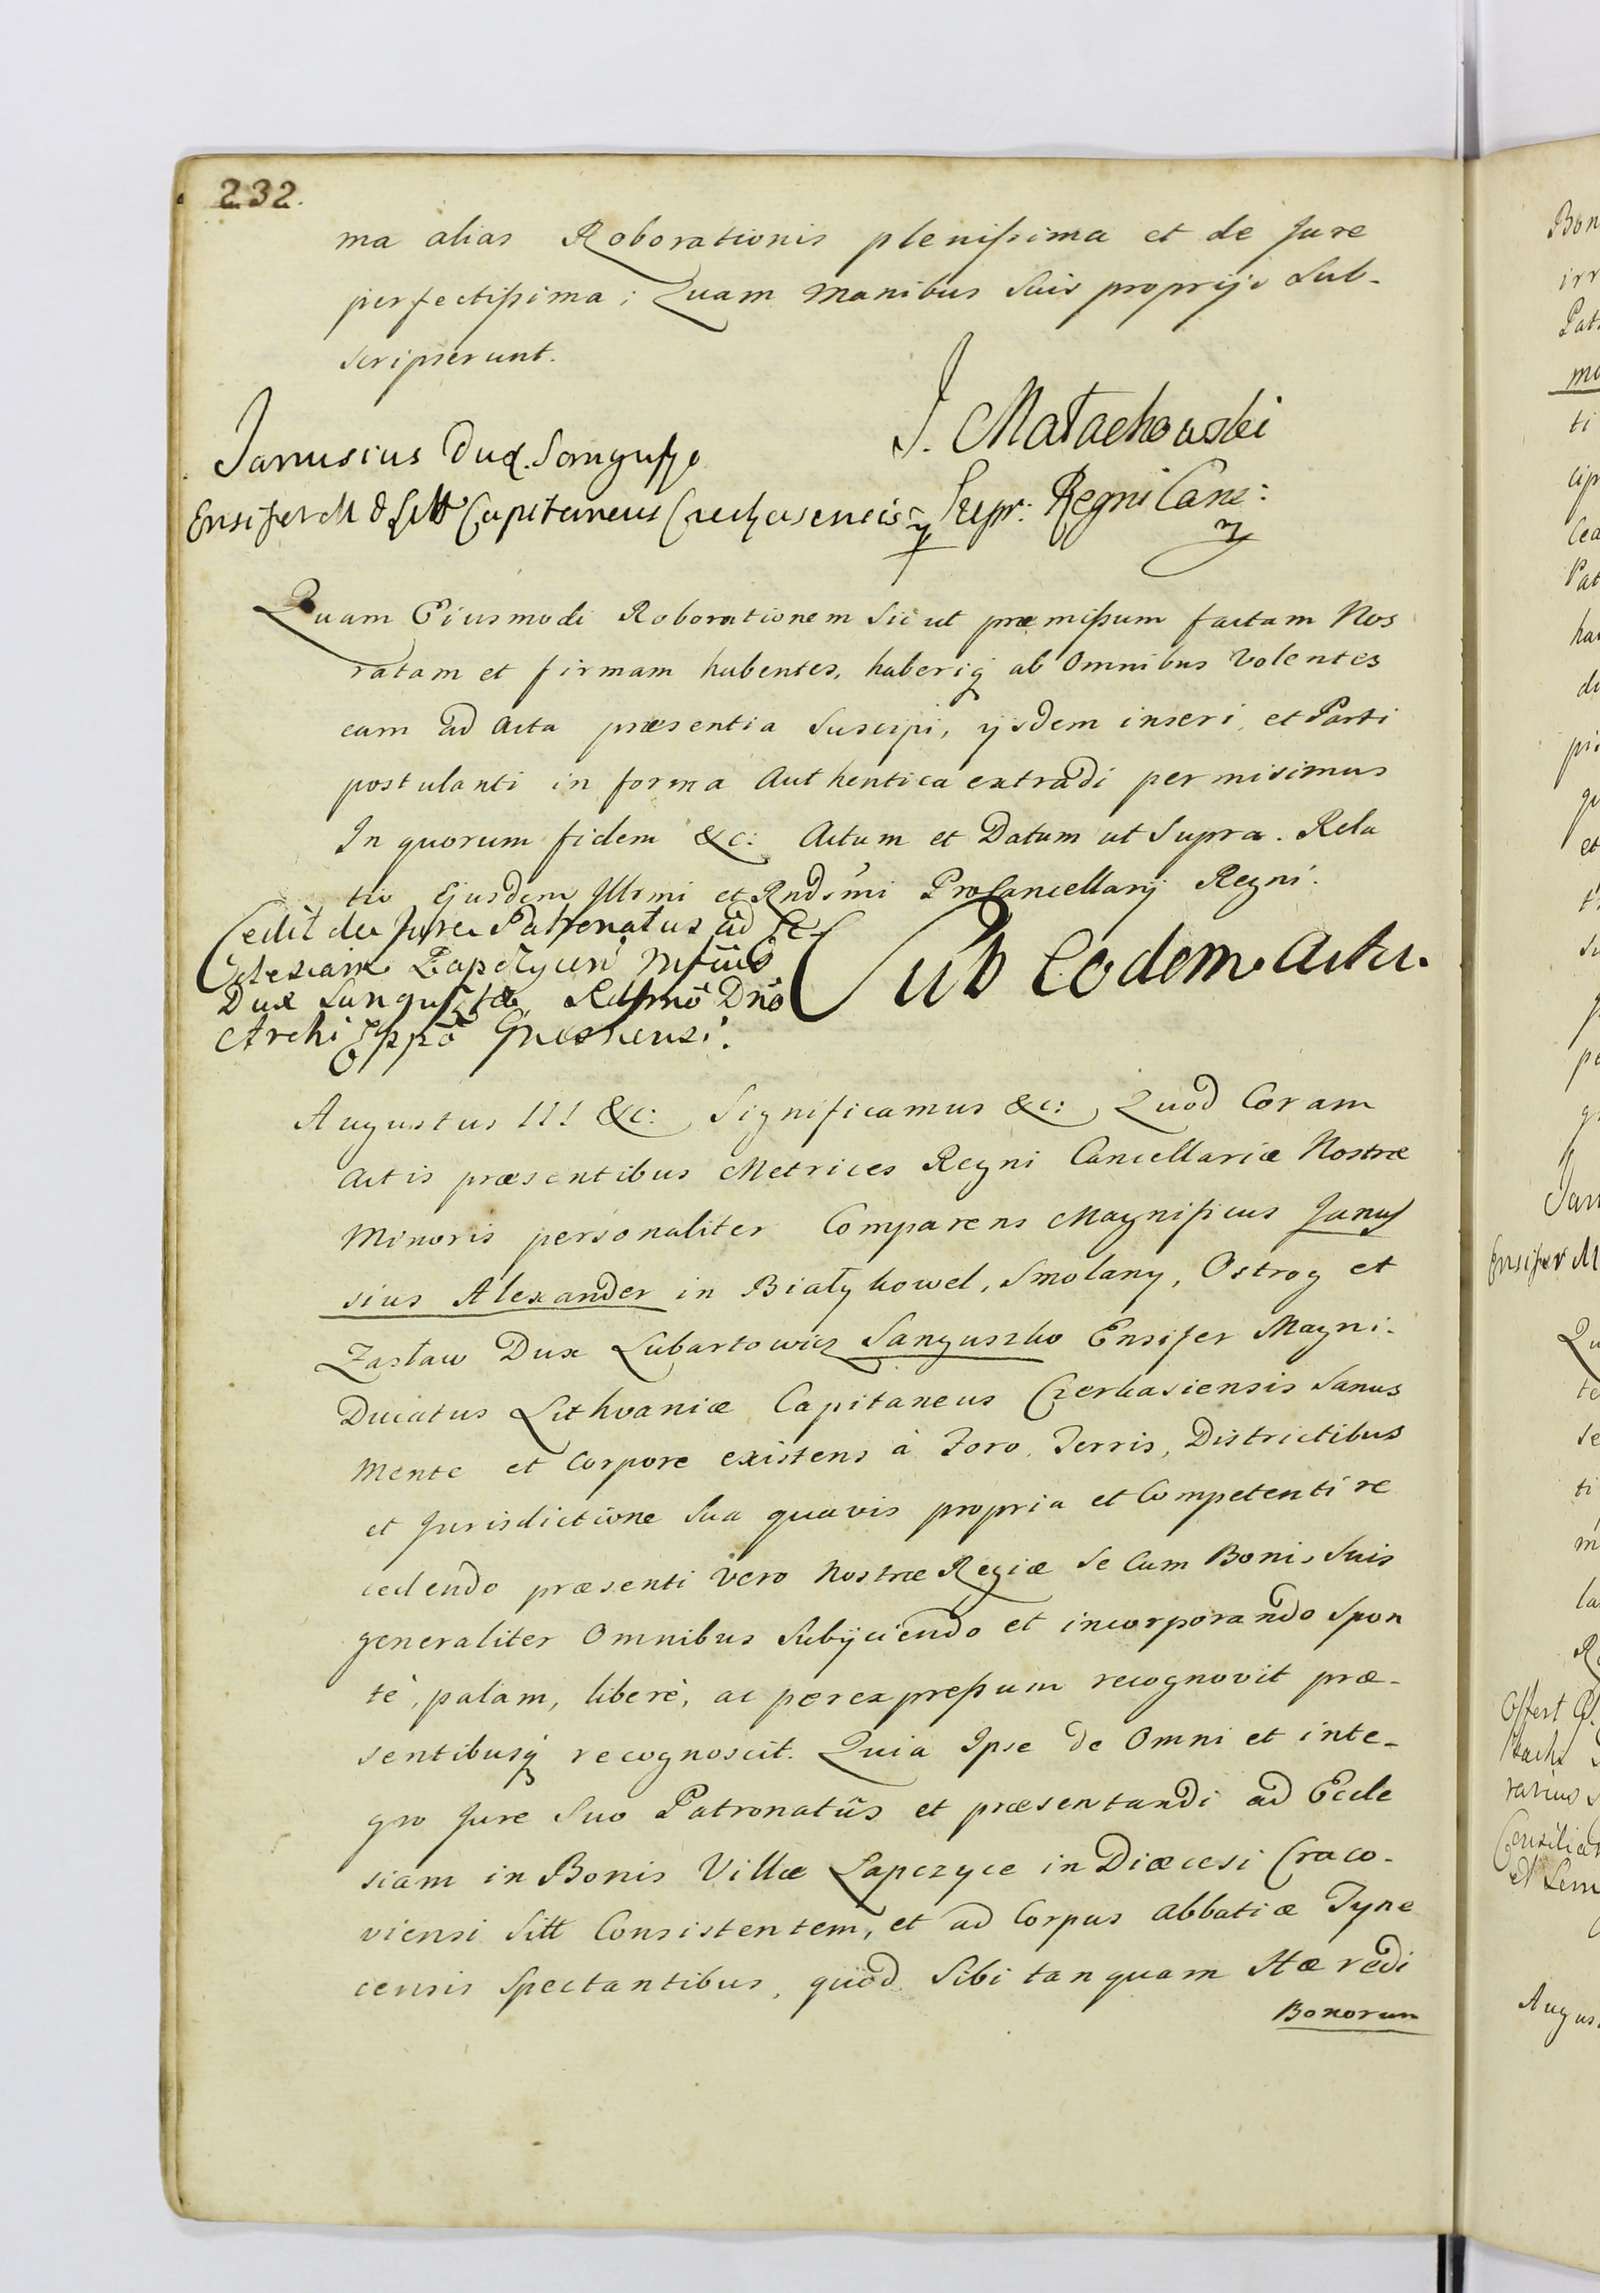 232.
ma alias Roborationis plenissima et de Jure
perfectissima; Quam Manibus Suis proprijs Sub-
scripserunt.
J. Małachowski
Janusius Dux. Sanguszko
Ensifer M D Litt Capitaneus Czerkasensis Supr: Regni Canc:
Quam Eiusmodi Roborationem Sicut præmissum factam Nos
ratam et firmam habentes, haberiq; ab Omnibus Volentes
eam ad Acta præsentia Suscipi, ijsdem inseri, et Parti
postulanti in forma Authentica extradi permisimus
In quorum fidem &c: Actum et Datum ut Supra. Rela
tio Ejusdem Illrmi et Rndsmi ProCancellarij Regni.
Cedit de Jure Patronatus ad Ec-
clesiam
Dux Sanguszko Dnō
Archi Eppō Gnesnensi.
Sub Eodem Actu.
Augustus III &c: Significamus &c: Quod Coram
Actis præsentibus Metrices Regni Cancellariæ Nostræ
Minoris personaliter Comparens Magnificus Janus
sius Alexander in Biały kowel, Smolany, Ostrog et
Zasław Dux Lubartowicz Sanguszko Ensifer Magni-
Ducatus Lithvaniæ Capitaneus Czerkasiensis Sanus
Mente et Corpore existens à Foro, Terris, Districtibus
et Jurisdictione Sua quavis propria et Competenti re
cedendo præsenti Vero Nostræ Regiæ Se Cum Bonis Suis
generaliter Omnibus Subijciendo et incorporando Spon
tè, palam, liberè, ac per expressum recognovit præ-
sentibusq; recognoscit. Quia Ipse de Omni et inte-
gro Jure Suo Patronatûs et præsentandi ad Eccle
siam in Bonis Villæ Łapczyce in Diæcesi Craco-
viensi Sitt Consistentem, et ad Corpus Abbatiæ Tyne
censis Spectantibus, quod Sibi tanquam Hæredi
Bonorum